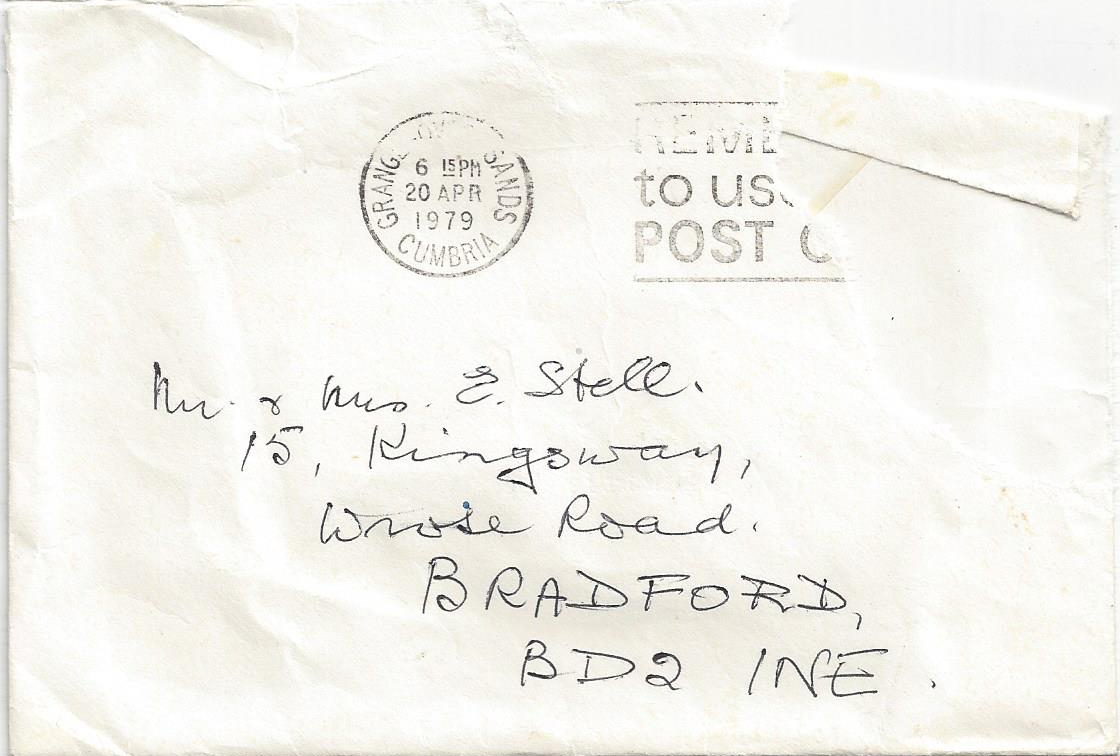 GRANGE OVER SANDS
6 15PM
20 APR
1979
CUMBRIA
REME
to use
POST O
Mr. & Mrs. E. Stell.
15, Kingsway,
Wrose Road.
BRADFORD,
BD2 1NE.